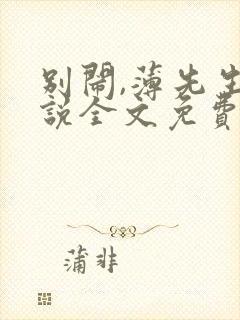 別鬧,薄先生
說全文免費
蒲非